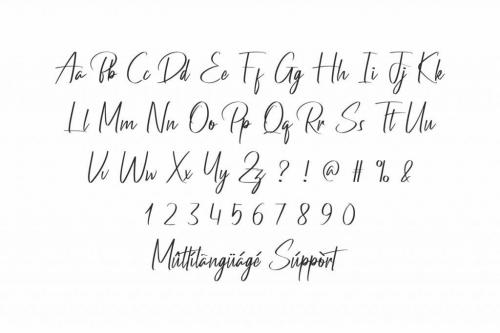 Aa Bb Cc Dd Ee Ff Gg Hh Ii Jj Kk
Ll Mm Nn Oo Pp Qq Rr Ss Tt Uu
Vv Ww Xx Yy Zz ? ! @ # % &
1 2 3 4 5 6 7 8 9 0
Múltílàngüágé Súppòrt